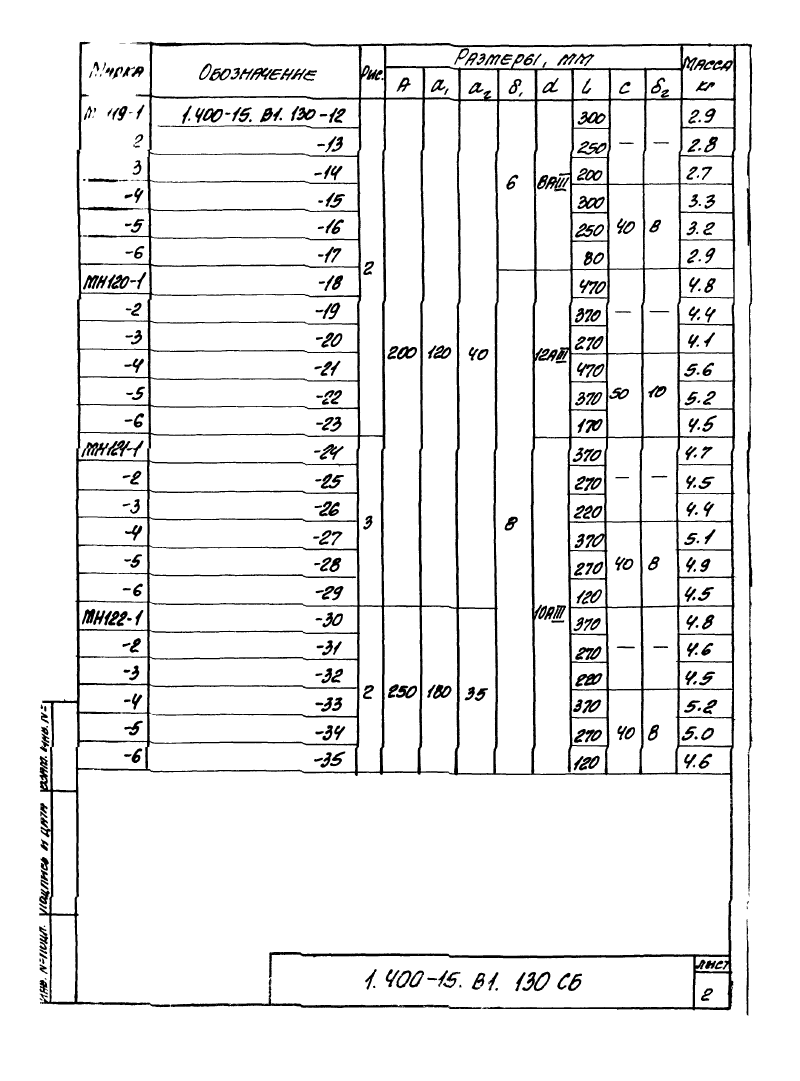 Марка Обозначение Рис. Размеры, мм Масса кг
А а₁ а₂ δ₁ d l c δ₂
МН119-1 1.400-15. В1. 130-12 2 200 120 40 6 8АIII 300 — — 2.9
2 -13 250 2.8
3 -14 200 2.7
-4 -15 300 40 8 3.3
-5 -16 250 3.2
-6 -17 80 2.9
МН120-1 -18 8 12АIII 470 — — 4.8
-2 -19 370 4.4
-3 -20 270 4.1
-4 -21 470 50 10 5.6
-5 -22 370 5.2
-6 -23 170 4.5
МН121-1 -24 3 10АIII 370 — — 4.7
-2 -25 270 4.5
-3 -26 220 4.4
-4 -27 370 40 8 5.1
-5 -28 270 4.9
-6 -29 120 4.5
МН122-1 -30 2 250 180 35 370 — — 4.8
-2 -31 270 4.6
-3 -32 220 4.5
-4 -33 370 40 8 5.2
-5 -34 270 5.0
-6 -35 120 4.6
Инв. № подл. Подпись и дата Взам. инв. №
1.400-15. В1. 130 СБ
Лист
2